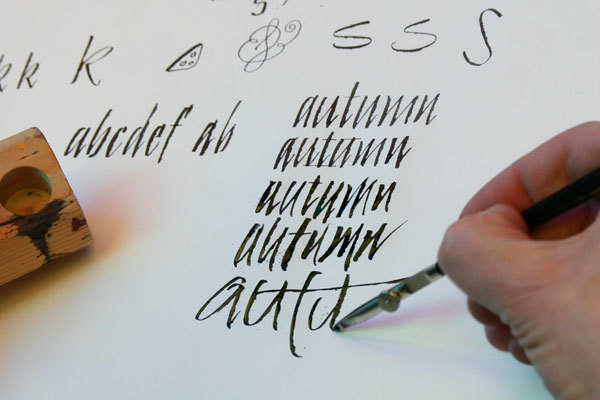 kk k & s s S
abcdef ab
autumn
autumn
autumn
autumn
autu